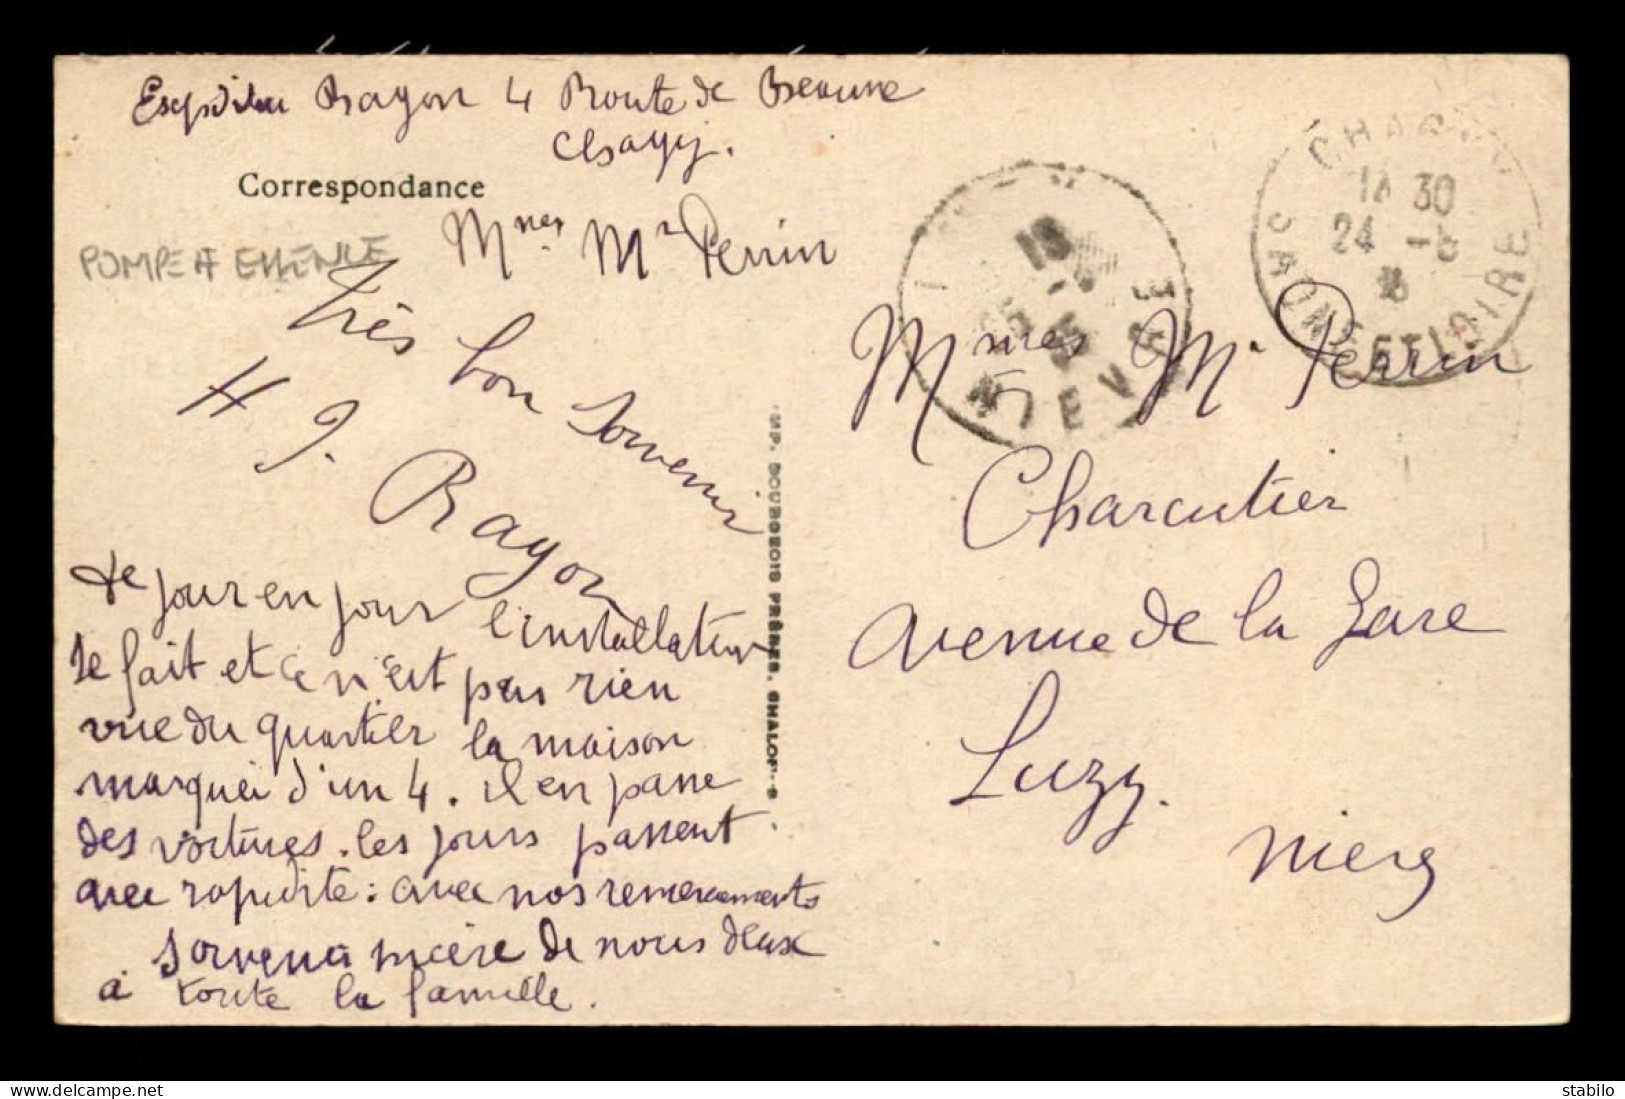 Expéditeur Ragon 4 Route de Beaune
Chagny.
Correspondance
POMPE A ESSENCE
Mmes Mr Perrin
Très bon souvenir
H J. Ragon
de jour en jour l'installation
se fait et ce n'est pas rien
vue du quartier la maison
marquée d'un 4. il en passe
des voitures. les jours passent
avec rapidité : avec nos remerciements
souvenir sincère de nous deux
à toute la famille.
IMP. BOURGEOIS FRÈRES, CHALON-S-
CHAGNY
30
24 -6
SAONE ET LOIRE
NIEVRE
Mmes Mr Perrin
Charcutier
Avenue de la Gare
Luzy.
Nièvre
stabilo